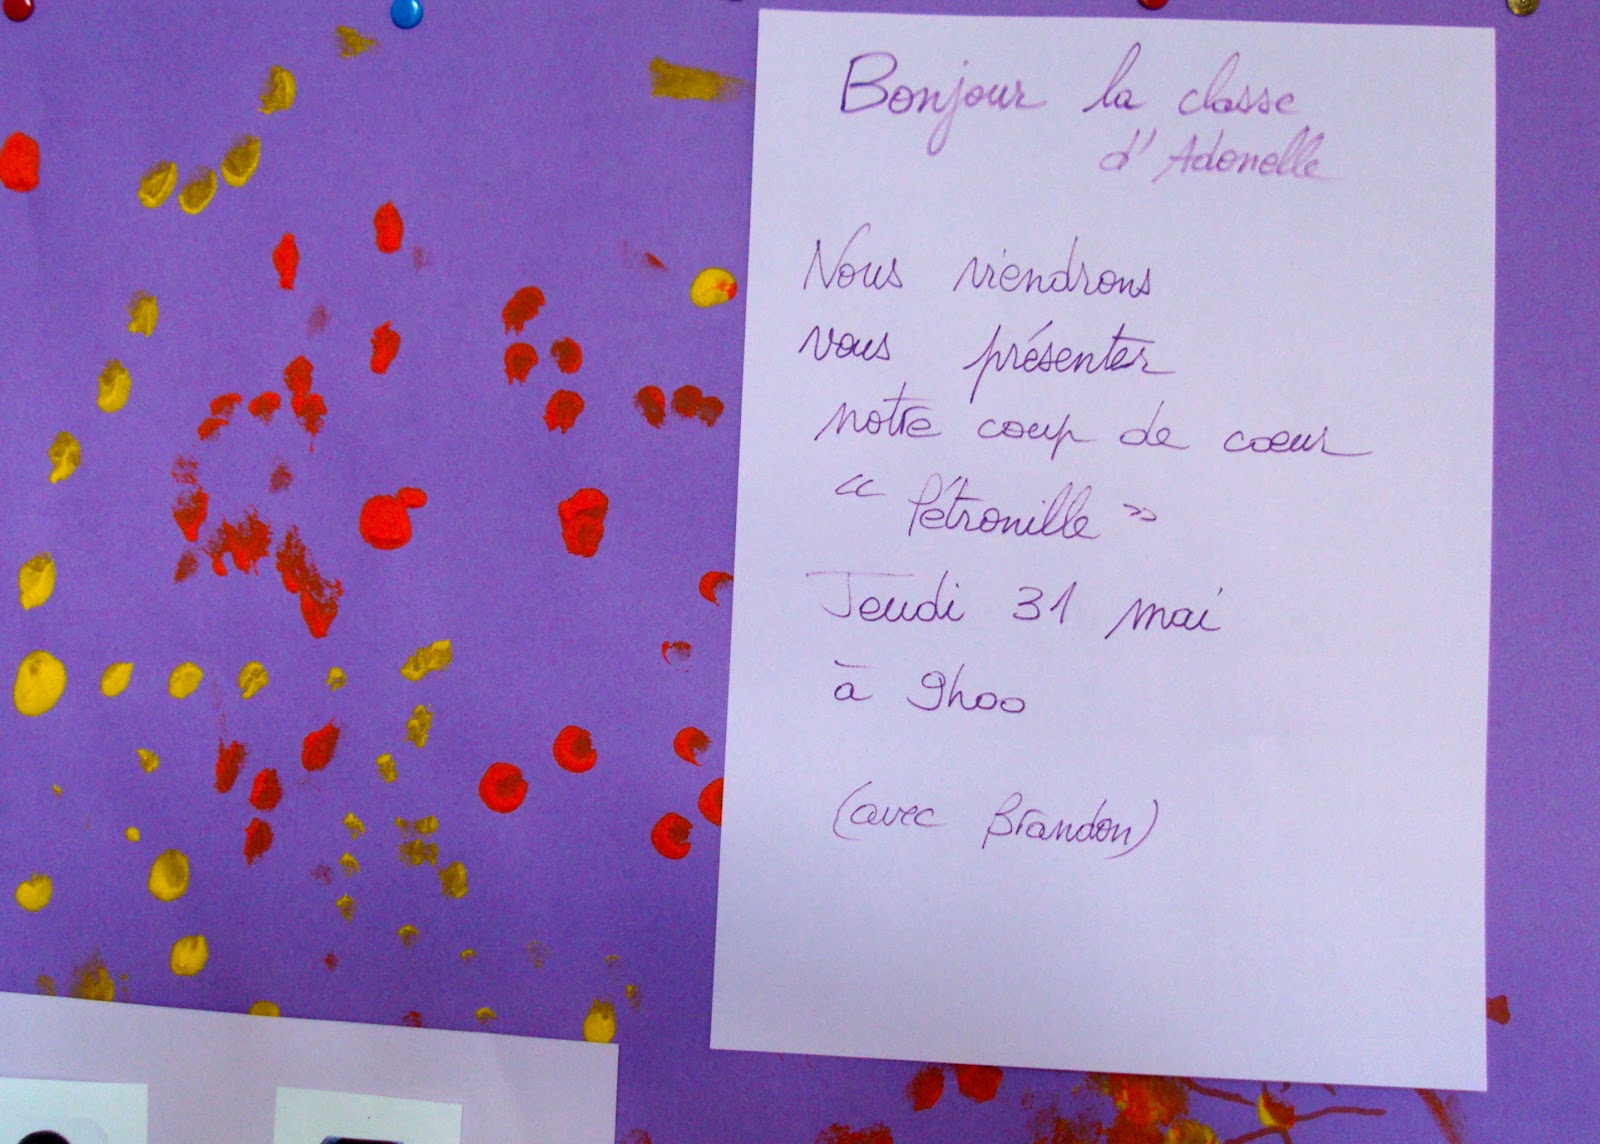 Bonjour la classe
d'Adonelle
Nous viendrons
vous présenter
notre coup de cœur
« Pétronille »
Jeudi 31 mai
à 9h00
(avec Brandon)